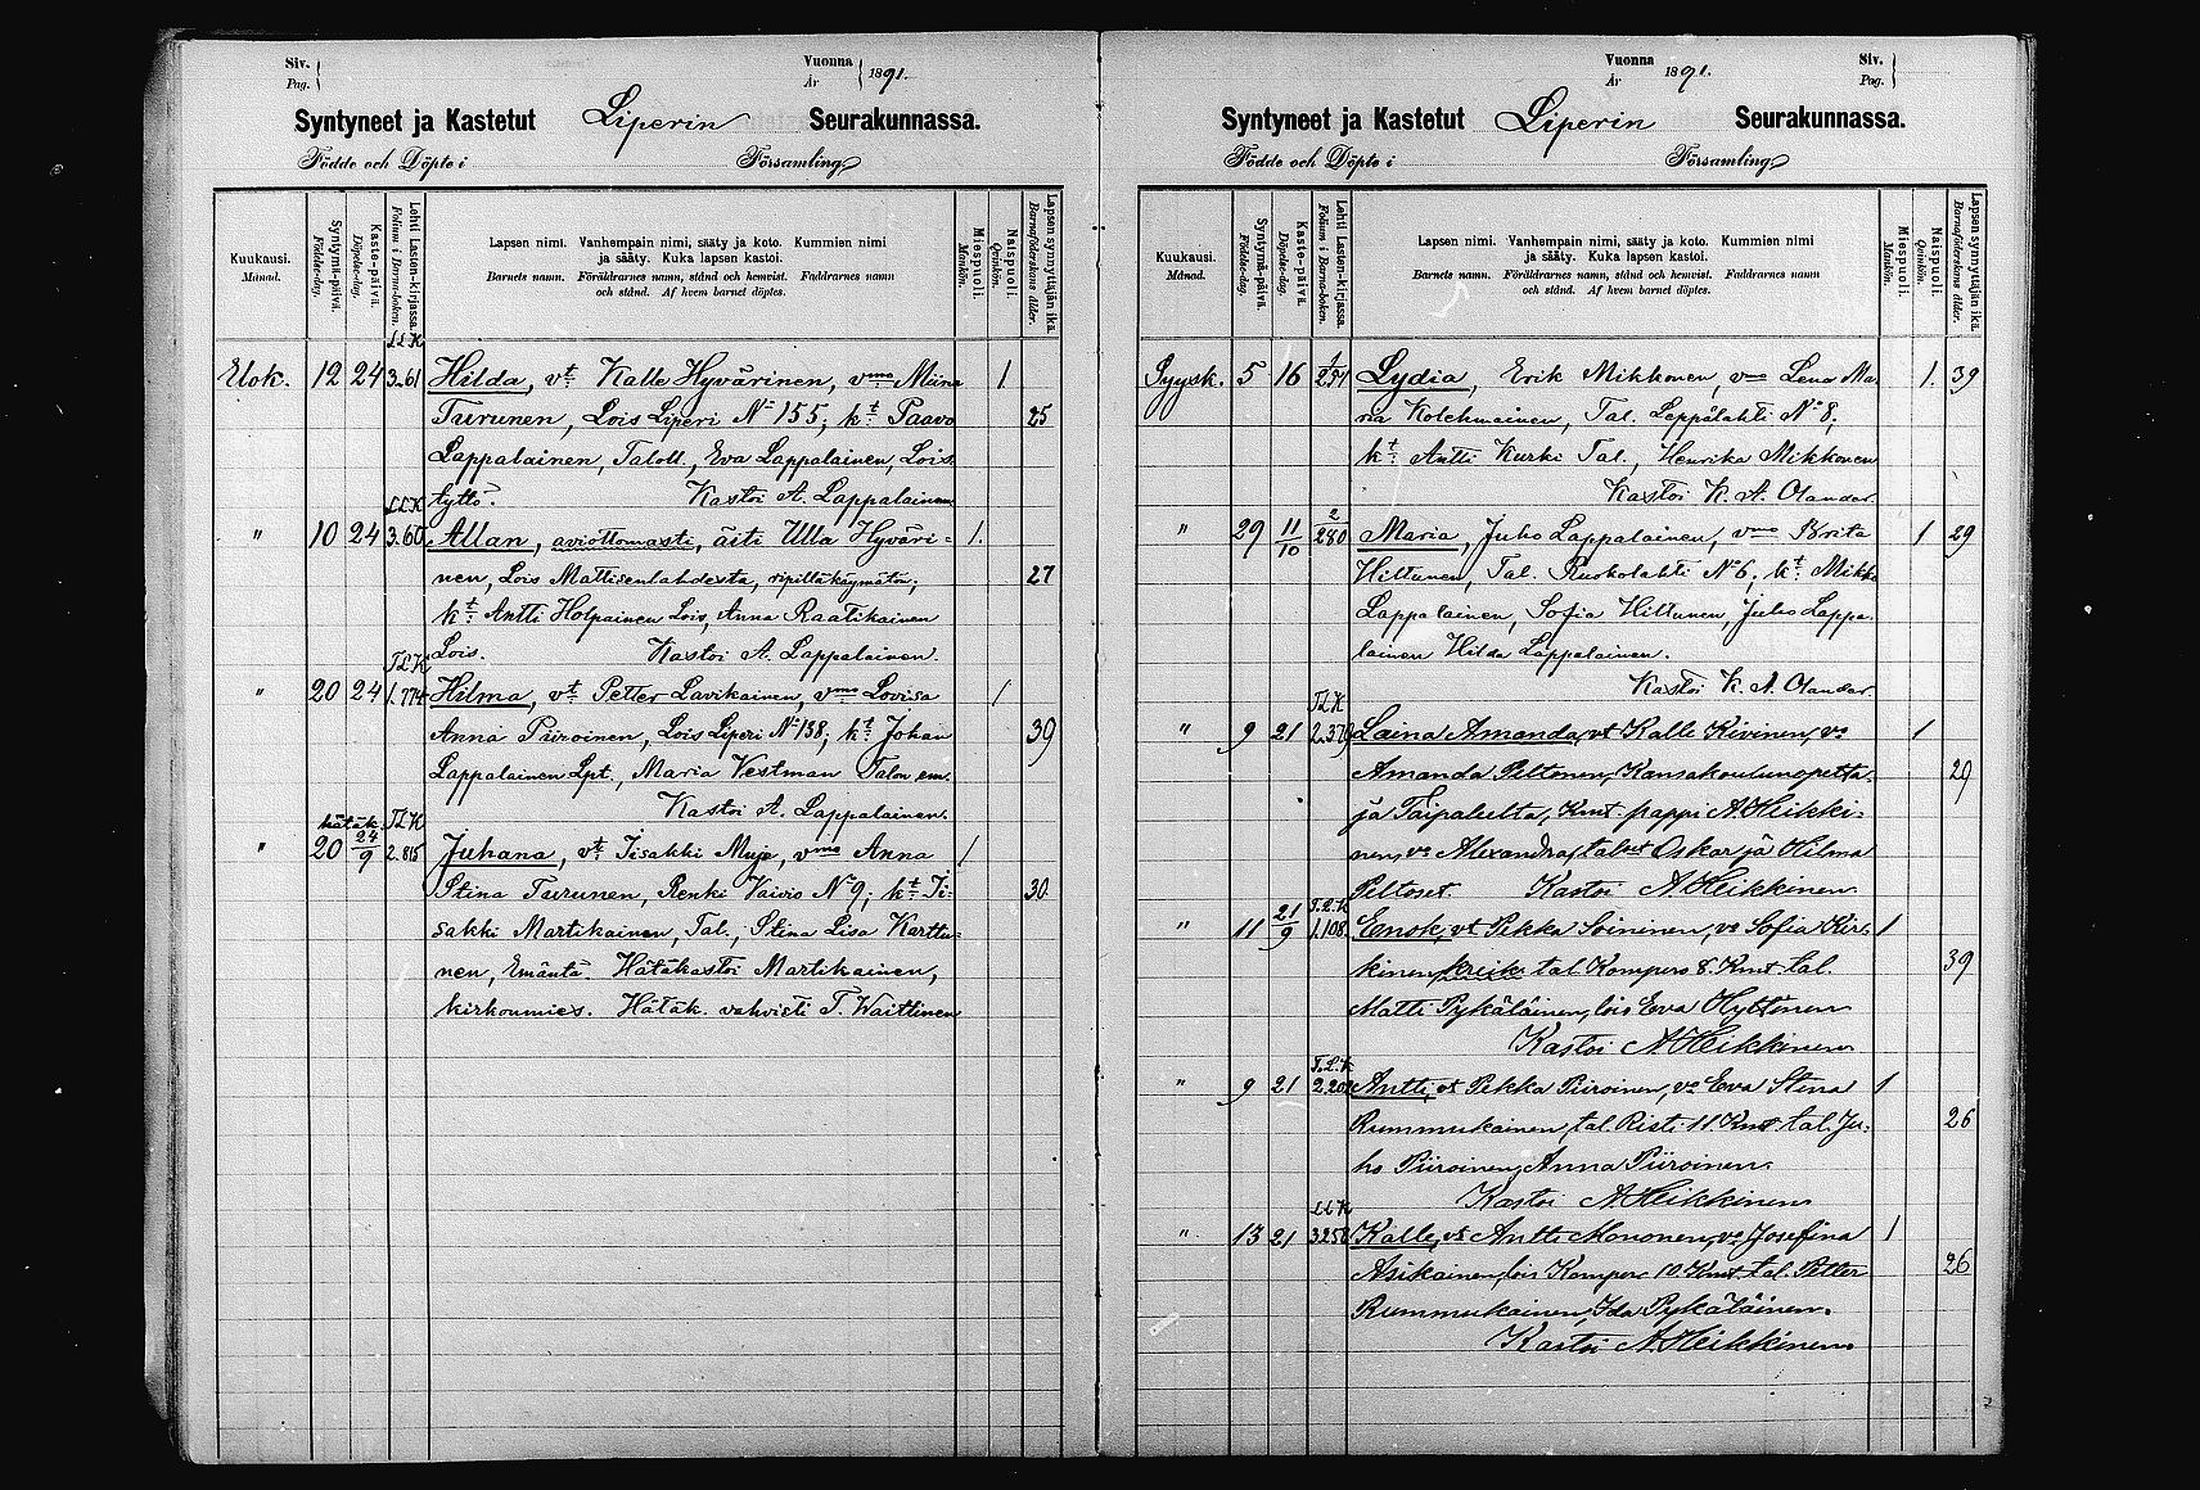 Siv.
Pag.
Vuonna
År
1891.
Syntyneet ja Kastetut Liperin Seurakunnassa.
Födde och Döpte i Församling
Kuukausi.
Månad.
Syntymä-päivä.
Födelse-dag.
Kaste-päivä.
Döpelse-dag.
Lehti Lasten-kirjassa.
Folium i Barna-boken.
Lapsen nimi. Vanhempain nimi, sääty ja koto. Kummien nimi
ja sääty. Kuka lapsen kastoi.
Barnets namn. Föräldrarnes namn, stånd och hemvist. Faddrarnes namn
och stånd. Af hvem barnet döptes.
Miespuoli.
Mankön.
Naispuoli.
Qvinkön.
Lapsen synnyttäjän ikä.
Barnaföderskans ålder.
LLK
Elok. 12 24 3.61 Hilda, vt Kalle Hyvärinen, vmo Miina 1
Turunen, Lois Liperi No 155; kt: Paavo 25
Lappalainen, Taloll., Eva Lappalainen, Lois.
LLK tyttö. Kastoi A. Lappalainen
" 10 24 3.60 Allan, aviottomasti, äiti Ulla Hyväri= 1.
nen, Lois Mattisenlahdesta, ripilläkäymätön; 27
kt: Antti Holpainen Lois, Anna Raatikainen
TLK Lois. Kastoi A. Lappalainen.
" 20 24 1.774 Hilma, vt Petter Lavikainen, vmo Lovisa 1
Anna Piiroinen, Lois Liperi No 138; kt: Johan 39
Lappalainen Lpt., Maria Vestman Talon em.
Kastoi A. Lappalainen.
hätäk. TLK
" 20 24/9 2.815 Juhana, vt Iisakki Muje, vmo Anna 1
Stina Turunen, Renki Vaivio No 9; kt: Ii= 30
sakki Martikainen, Tal., Stina Lisa Karttu=
nen, Emäntä. Hätäkastoi Martikainen,
kirkonmies. Hätäk. vahvisti T. Waittinen
Vuonna
År
1891.
Siv.
Pag.
Syntyneet ja Kastetut Liperin Seurakunnassa.
Födde och Döpte i Församling
Kuukausi.
Månad.
Syntymä-päivä.
Födelse-dag.
Kaste-päivä.
Döpelse-dag.
Lehti Lasten-kirjassa.
Folium i Barna-boken.
Lapsen nimi. Vanhempain nimi, sääty ja koto. Kummien nimi
ja sääty. Kuka lapsen kastoi.
Barnets namn. Föräldrarnes namn, stånd och hemvist. Faddrarnes namn
och stånd. Af hvem barnet döptes.
Miespuoli.
Mankön.
Naispuoli.
Qvinkön.
Lapsen synnyttäjän ikä.
Barnaföderskans ålder.
Syysk. 5 16 Lydia, Erik Mikkonen, vmo Lena Ma- 1. 39
ria Kolehmainen, Tal. Leppälahti No 8;
kt: Antti Kurki Tal., Henrika Mikkonen
Kastoi K. A. Olander.
" 29 11/10 2/280 Maria, Juho Lappalainen, vmo Brita 1 29
Hiltunen, Tal. Ruokolahti No 6; kt: Mikko
Lappalainen, Sofia Hiltunen, Juho Lappa-
lainen Hilda Lappalainen.
Kastoi K. A. Olander.
TLK
" 9 21 2.379 Laina Amanda, vt Kalle Kivinen, vo 1
Amanda Peltonen, Kansakoulunopetta- 29
ja Taipaleelta, Kmt. pappi A. Heikki=
nen, vo Alexandra, talset Oskar ja Hilma
Peltoset. Kastoi A. Heikkinen
T.L.K
" 11 21/9 1.108. Enok, vt Pekka Soininen, vo Sofia Kir- 1
kinen, kreik. tal. Kompero 8. Kmt. tal. 39
Matti Pykäläinen, lois Eva Hyttinen
Kastoi A. Heikkinen
T.L.K
" 9 21 2.202 Antti, vt Pekka Piiroinen, vo Eva Stina 1
Rummukainen, tal. Risti 11. Kmt. tal. Ju- 26
ho Piiroinen, Anna Piiroinen.
Kastoi A. Heikkinen
LLK
" 13 21 3.258 Kalle, vt Antti Mononen, vo Josefina 1
Asikainen, lois Kompero 10. Kmt. tal. Petter 26
Rummukainen, Ida Pykäläinen.
Kastoi A. Heikkinen